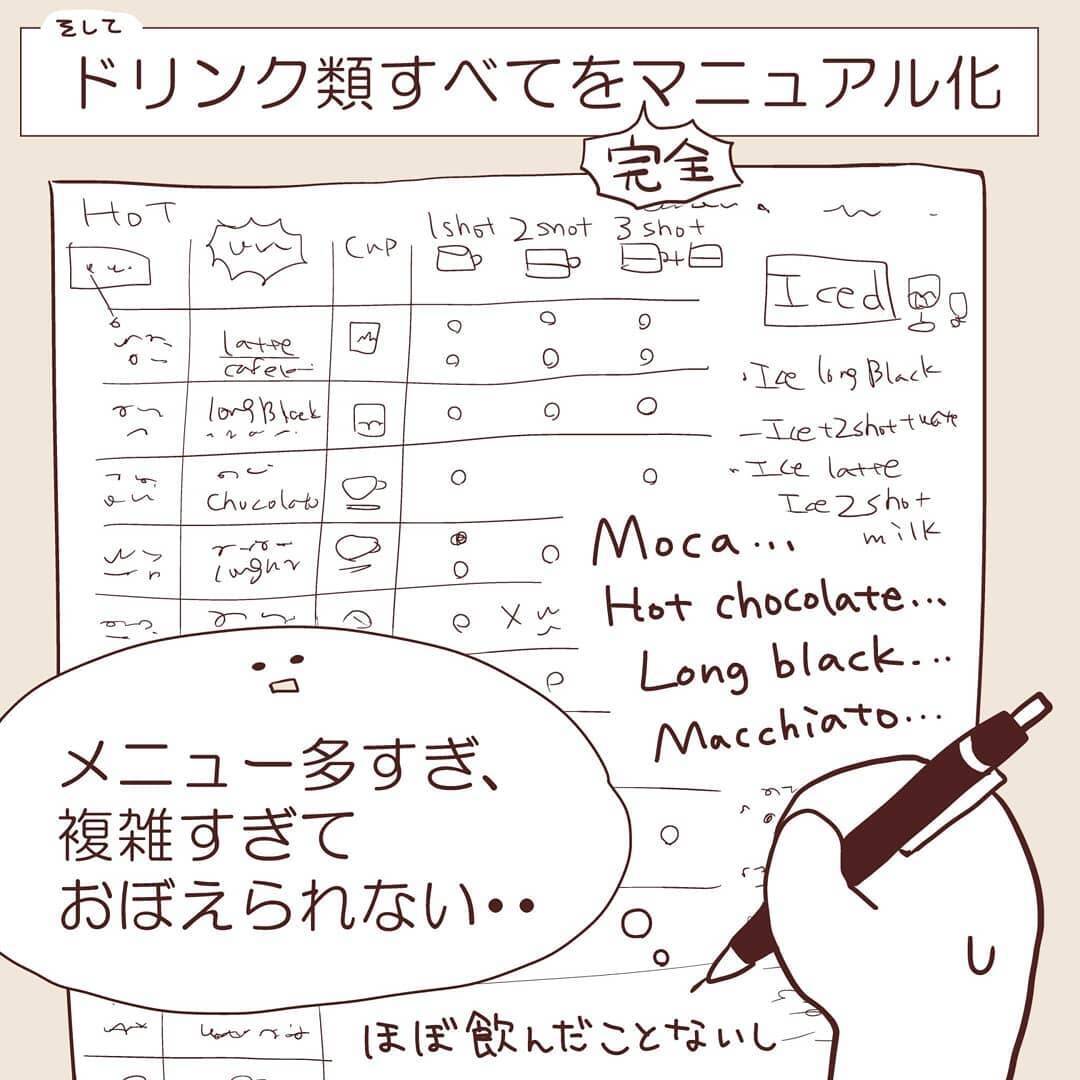 そして
ドリンク類すべてをマニュアル化
完全
HOT
Cup
1shot 2shot 3shot
Iced
latte
long Black
Chocolate
・Ice long Black
Ice+2shot+
・Ice latte
Ice 2shot
milk
Moca...
Hot chocolate...
Long black...
Macchiato...
メニュー多すぎ、
複雑すぎて
おぼえられない・・
ほぼ飲んだことないし